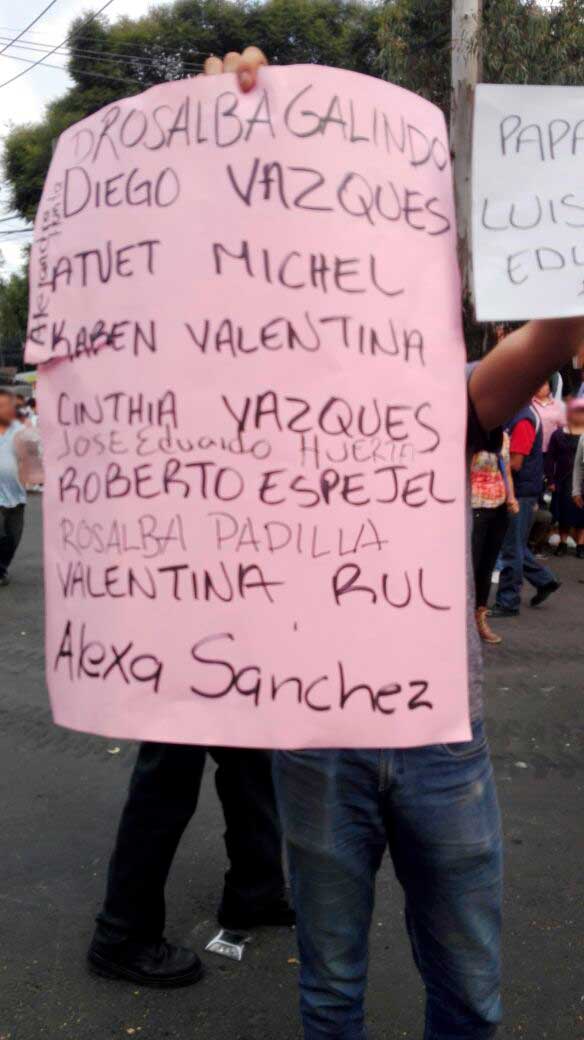 DROSALBA GALINDO
DIEGO VAZQUES
ATVET MICHEL
KAREN VALENTINA
CINTHIA VAZQUES
JOSE Eduardo HUERTA
ROBERTO ESPEJEL
ROSALBA PADILLA
VALENTINA RUL
Alexa Sanchez
Alejandra
PAPA
LUIS
EDU